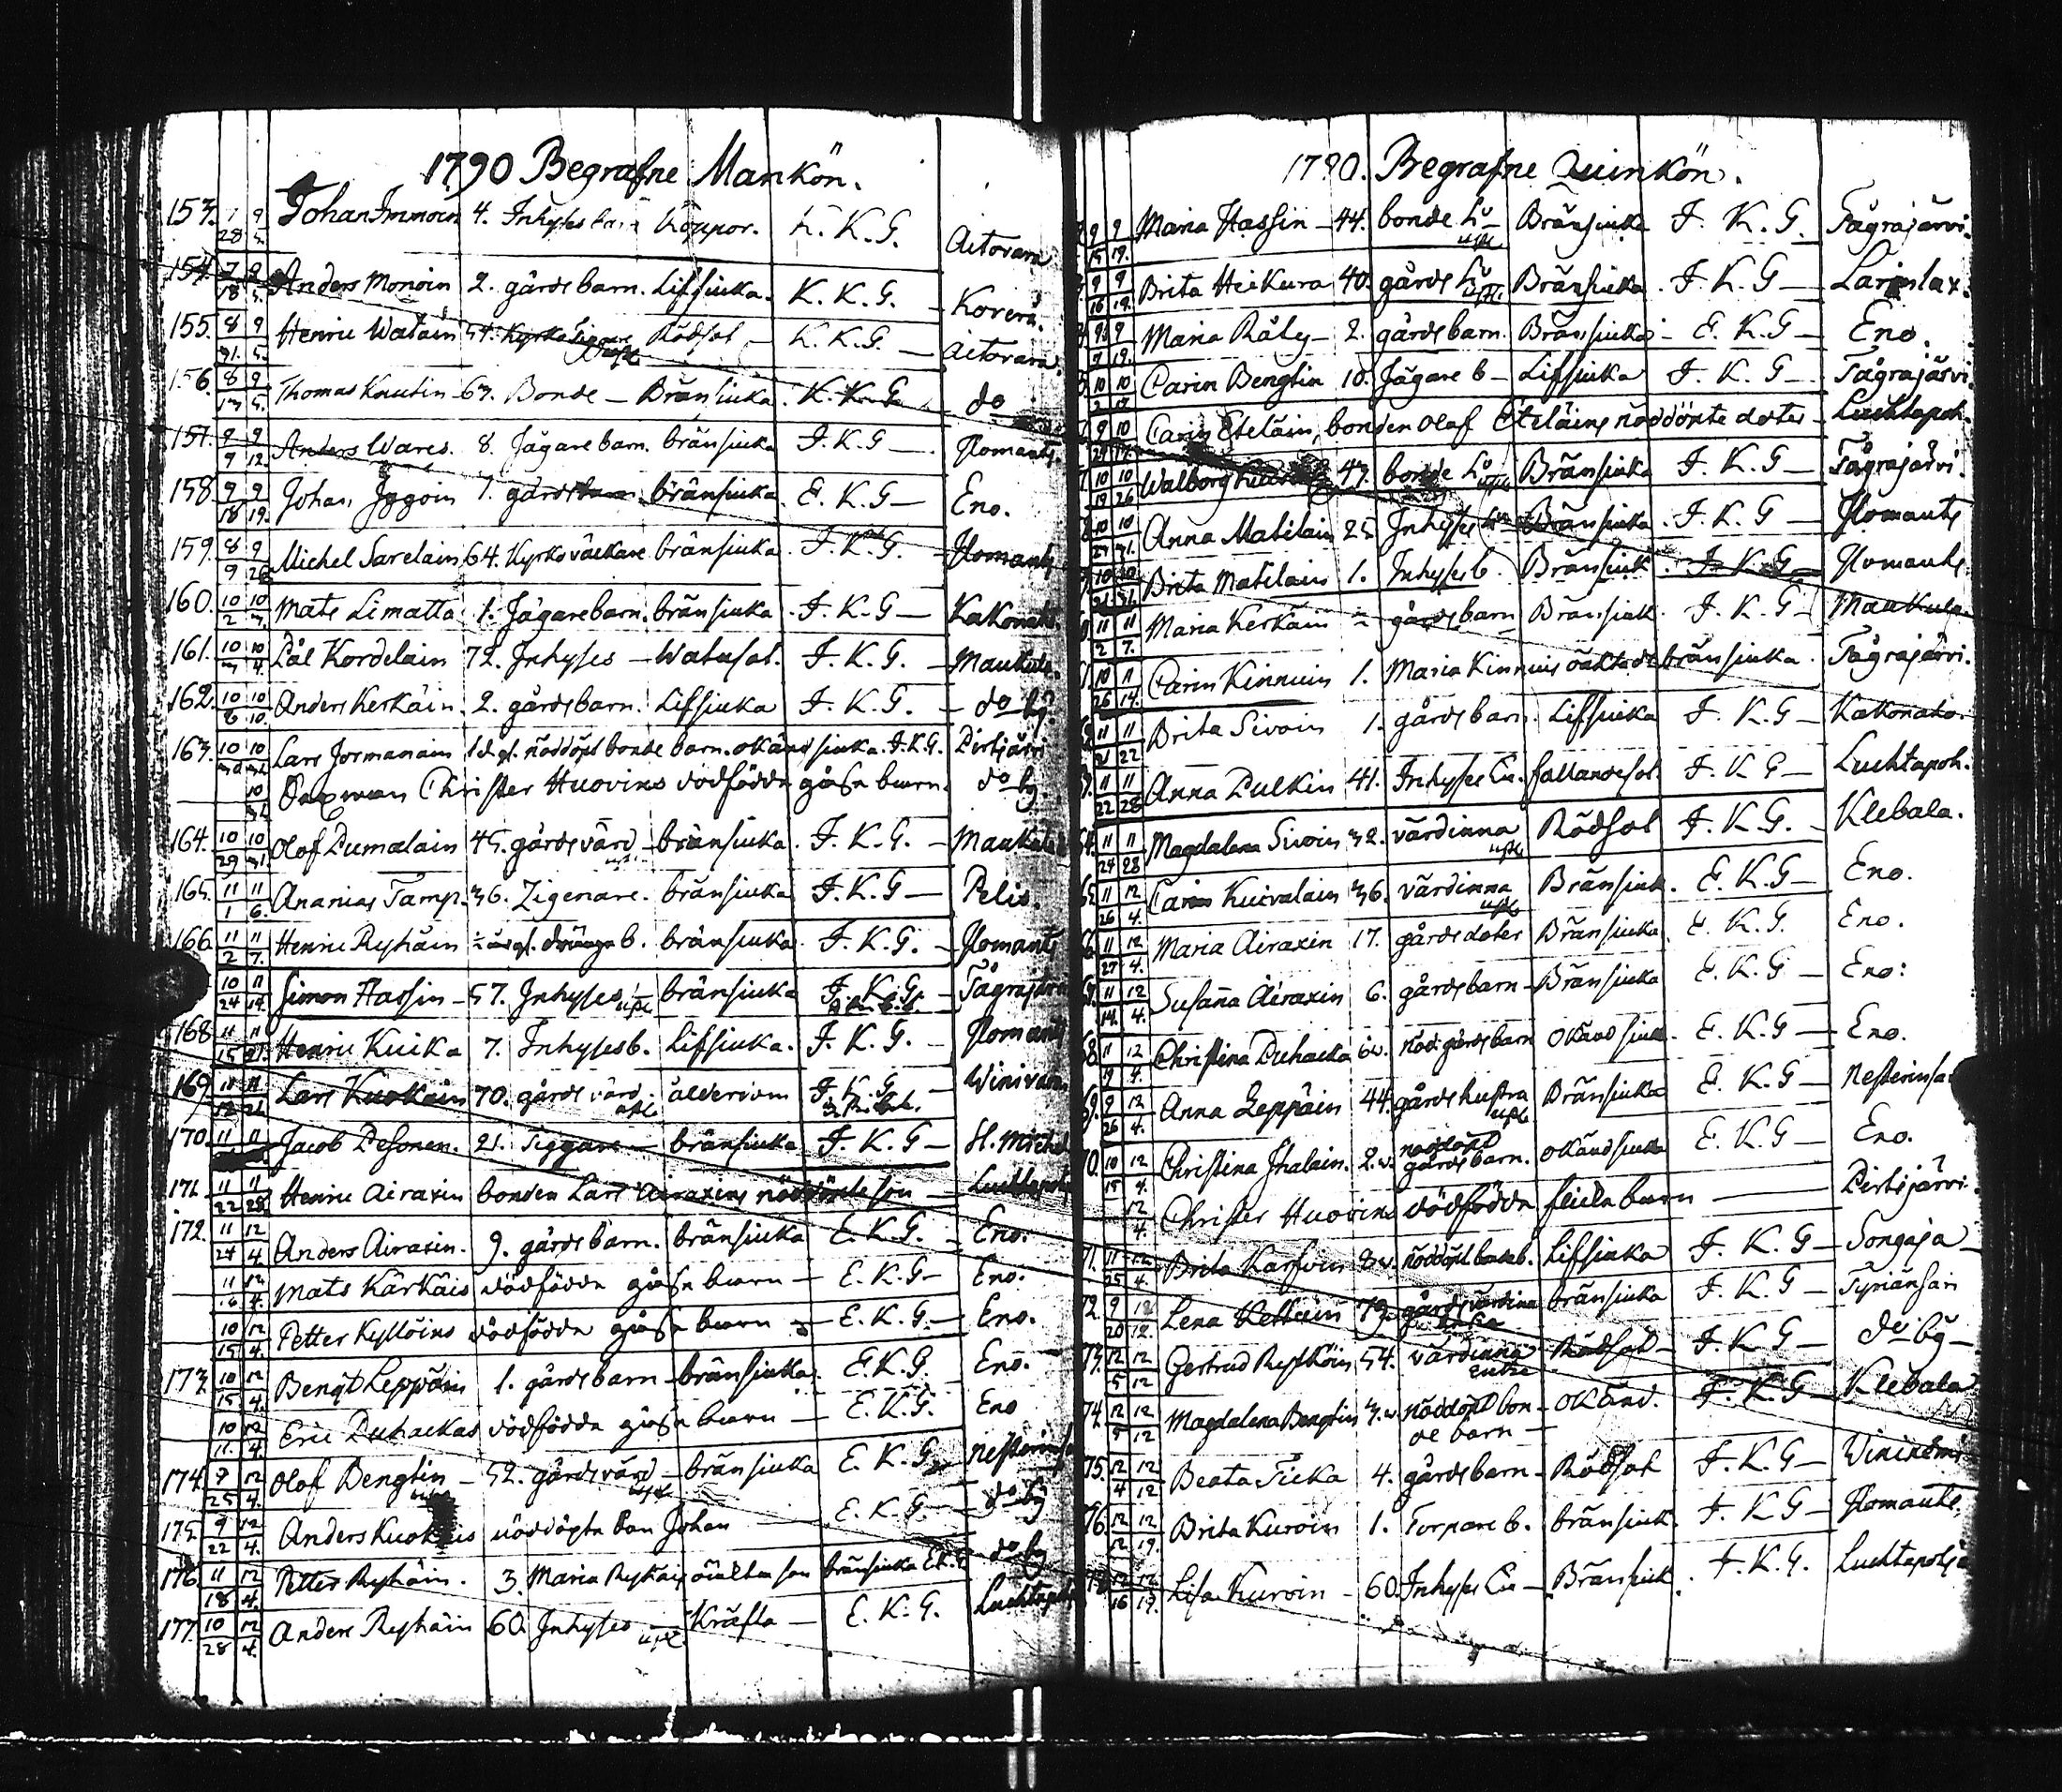 1790 Begrafne Mankön.
153. 7 9 Johan Immoin 4. Inhyses barn Koppor. K. K. G. Aitovara
28 5.
154. 7 9 Anders Monoin 2. gårds barn. Lifsiuka. K. K. G. Koverå.
18 5.
155. 8 9 Henric Watain 54. Kyrko Tiggare Rödsot K. K. G. Aitovara.
31. 5.
156. 8 9 Thomas Knutin 63. Bonde Bränsiuka K. K. G. do
13 5.
157. 9 9 Anders Wares. 8. Jägare barn. bränsiuka I. K. G Ilomants
9 12.
158. 9 9 Johan Iggoin 1. gårdsbarn bränsiuka E. K. G Eno.
18 19.
159. 8 9 Michel Sarelain 64. Kyrkoväckare bränsiuka I. K. G. Ilomants
9 26
160. 10 10 Mats Limatta 1. Jägarebarn. bränsiuka I. K. G Kakonaho
2 3
161. 10 10 Pål Kordelain 72. Inhyses Watusot. I. K. G. Maukula.
3 4.
162. 10 10 Anders Kerkäin 2. gårdsbarn. Lifsiuka I. K. G. do by.
6 10.
163. 10 10 Lars Jormanain 1 d. gl. nöddöpt bonde barn. okänd siuka. I. K. G. Pirtijärvi
30 31
10 Christer Huovins dödfödda gåsse barn. do by.
31
164. 10 10 Olof Pumalain 45. gårds värd bränsiuka. I. K. G. Maukula
29 31
165. 11 11 Ananias Tamp. 36. Zigenare. bränsiuka I. K. G Pelis.
1 6.
166. 11 11 Henric Ryhäin ½ år gl. drängs b. bränsiuka I. K. G. Ilomants
2 7.
10 11 Simon Hassin 57. Inhyses bränsiuka I. K. G. Tågrajärvi
24 14.
168 11 11 Henric Kuika 7. Inhyses b. Lifsiuka. I. K. G. Ilomants
15 21.
169 11 11 Lars Kuokäin 70. gårds värd ålderdom I. K. G. Winivara
12 21.
170. 11 11 Jacob Pesonen. 21. Tiggare bränsiuka I. K. G St. Michel
171. 11 11 Henric Airaxin bonden Lars Airaxins nöddöpte son Luchtapoh
22 28.
172. 11 12 Anders Airaxin. 9. gårds barn. bränsiuka E. K. G. Eno.
24 4.
11 12 Mats Kärkäis dödfödda gåsse barn E. K. G Eno.
16 4.
10 12 Petter Kyllöins dödfödda gåsse barn E. K. G. Eno.
15 4.
173. 10 12 Bengt Leppöin 1. gårds barn bränsiuka E. K. G. Eno.
15 4.
10 12 Eric Puhackas dödfödda gåsse barn E. K. G. Eno
11. 4.
174. 7 12 Olof Bengtin 52. gårdsvärd bränsiuka E. K. G Nesterinsa
25 4.
175. 9 12 Anders Kuokäis nöddöpta son Johan E. K. G. do by
22 4.
176 11 12 Petter Ryhäin. 3. Maria Ryhäis oäkta son bränsiuka E. K. G do by
18 4.
177. 10 12 Anders Ryhäin 60. Inhyses Kräfta E. K. G. Luchtapoh
28 4.
1790. Begrafne Quinkön.
9 9 Maria Hassin 44. bonde hu Bränsiuka I. K. G. Tågrajärvi.
15 19.
9 9 Brita Heikura 40. gårds hu Bränsiuka I. K. G Larinlax.
16 19.
9 9 Maria Räty 2. gårds barn. Bränsiuka E. K. G Eno.
7 19.
10 10 Carin Bengtin 10. Jägare b Lifsiuka I. K. G Tågrajärvi
2 17
9 10 Carin Eteläin, bonden Olof Eteläins nöddöpte doter Luchtapoh.
29 17.
10 10 Walborg 43. bonde hu Bränsiuka I. K. G Tågrajärvi.
19 26
10 10 Anna Matilain 25. Inhyses hu Bränsiuka. I. K. G Ilomants
27 31.
10 10 Brita Matilain 1. Inhyses b. Bränsiuk I. K. G Ilomants.
21 31.
11 11 Maria Kerkäin gårds barn Bränsiuk. I. K. G Maukula
2 7.
10 11 Carin Kinnuin 1. Maria Kinnuis oäkta dr bränsiuka. Tågrajärvi.
26 14.
11 11 Brita Sivoin 1. gårds barn. Lifsiuka I. K. G Kakonaho.
21 22
11 11 Anna Pulkin 41. Inhyses Eu. fallandesot. I. K. G Luchtapoh.
22 28
11 11 Magdalena Sivoin 32. värdinna Rödsot I. K. G. Klebala.
24 28
11 12 Carin Kuivalain 36. värdinna Bränsiuk. E. K. G Eno.
26 4.
11 12 Maria Airaxin 17. gårds doter Bränsiuka. E. K. G. Eno.
27 4.
11 12 Susana Airaxin 6. gårds barn Bränsiuka E. K. G Eno.
14. 4.
11 12 Christina Puhacka 6 w. nöd. gårds barn okänd siuk. E. K. G Eno.
19 4.
9 12 Anna Leppäin 44. gårds hustra Bränsiuka E. K. G Nesterinsa
26 4.
10 12 Christina Ihalain. 2. w. nöddöpt gårds barn. okänd siuka E. K. G Eno.
15 4.
12 Christer Huovins dödfödda flicke barn Pirtijärvi.
4.
11 12 Brita Karfvin 3 w. nöddöpt b. Lifsiuka I. K. G Songaja
25 4.
9 12 Lena Kettuin 79 gårds värdinna Enka bränsiuka I. K. G Tynänsari
20 12.
12 12 Gertrud Ryhköin 54. värdinna Enka Rödsot I. K. G do by
5 12
12 12 Magdalena Bengtin 3. w nöddöpt bonde barn okänd. I. K. G Klebala
5 12
12 12 Beata Ticka 4. gårds barn Rödsot I. K. G
4 12
12 12 Brita Kuroin 1. Torpare b. bränsiuk. I. K. G Ilomants.
12 19.
12 12 Lisa Kuroin 60. Inhyses Eu Bränsiuk. I. K. G. Luchtapohja
16 19.